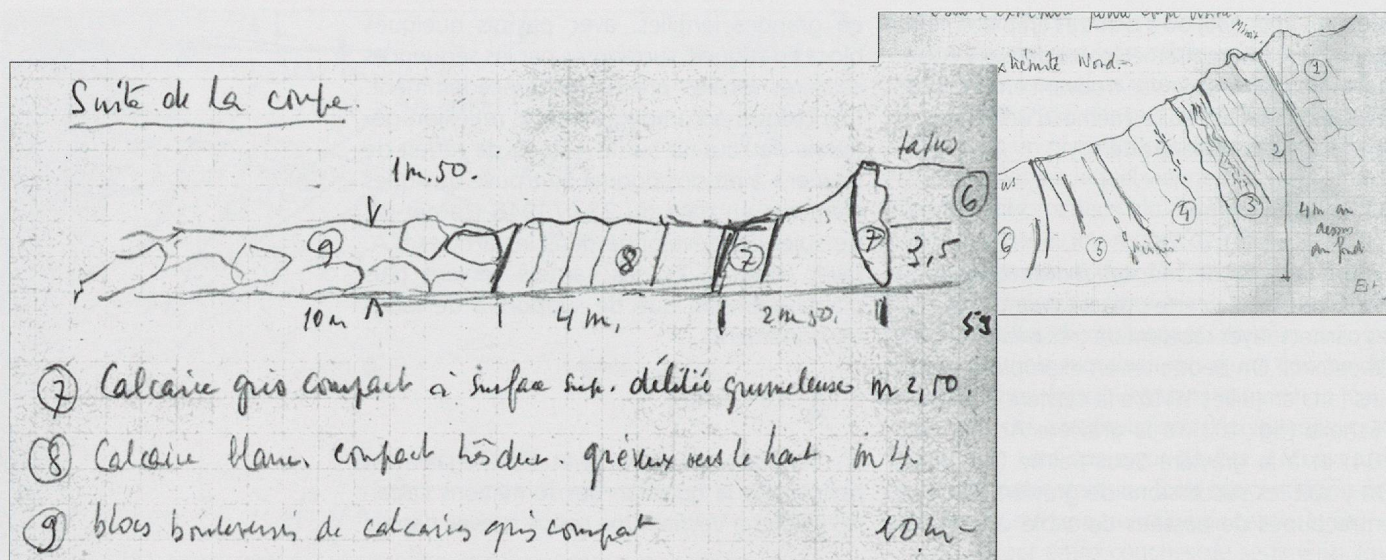 Suite de la coupe
1m.50.
talus
9
8
7
7
6
3,5
10m
4 m.
2m50.
53
7 Calcaire gris compact à surface sup. délitée grumeleuse m 2,50.
8 Calcaire blanc compact très dur gréseux vers le haut m 4.
9 blocs bouleversés de calcaires gris compact 10m
extrémité Nord
1
2
3
4
5
6
4m au
dessus
du fond